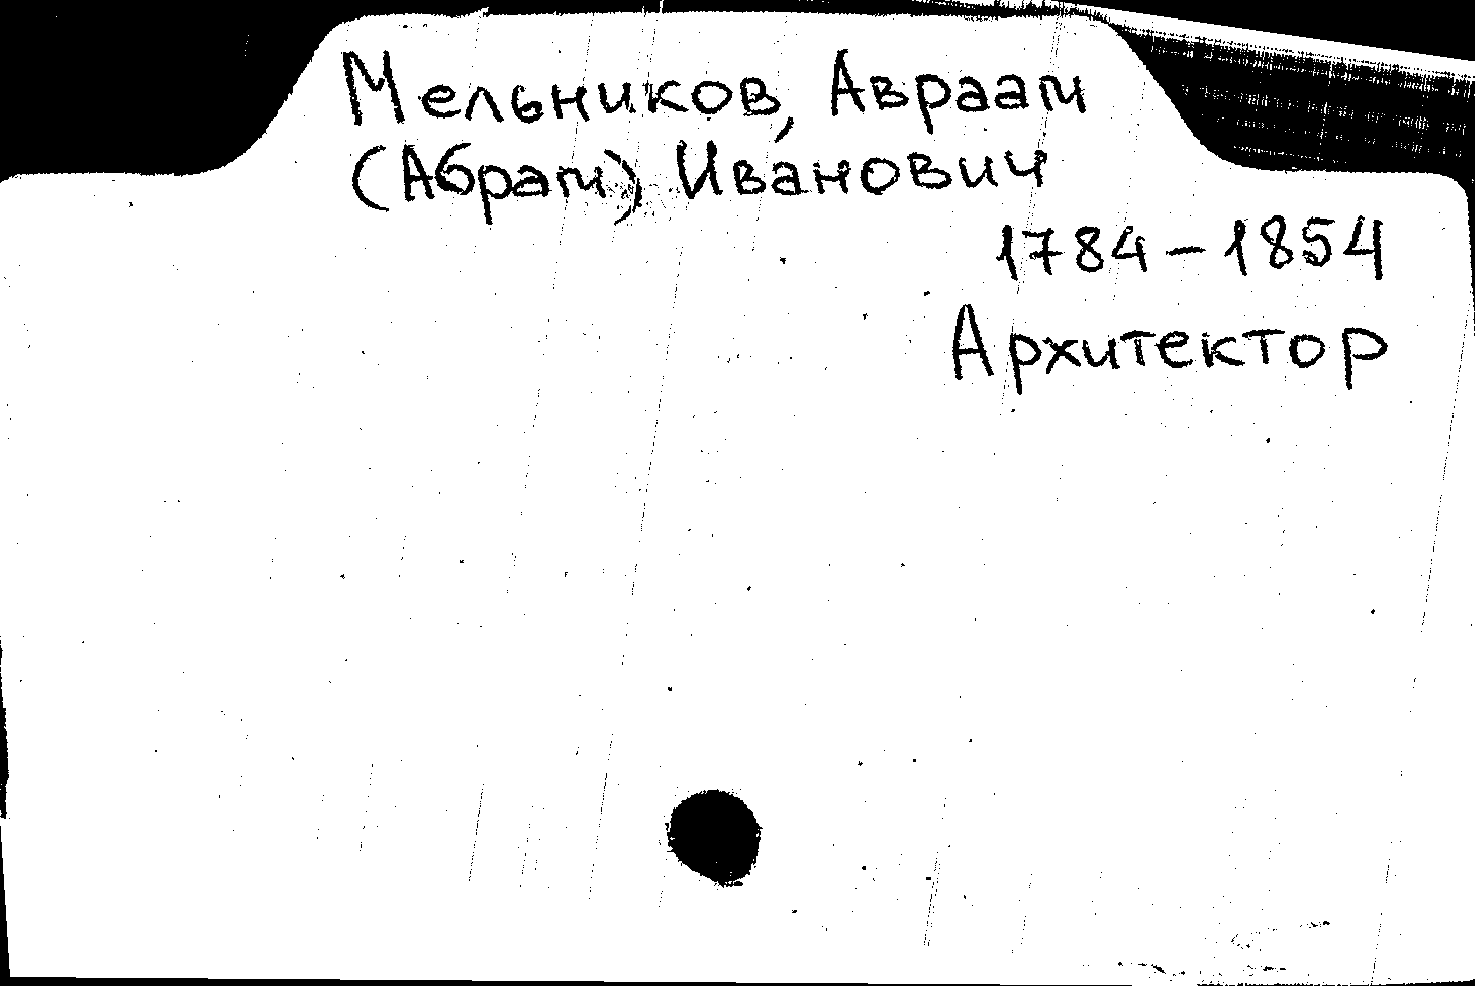 Мельников, Авраам
(Абрам) Иванович
1784-1854
Архитектор